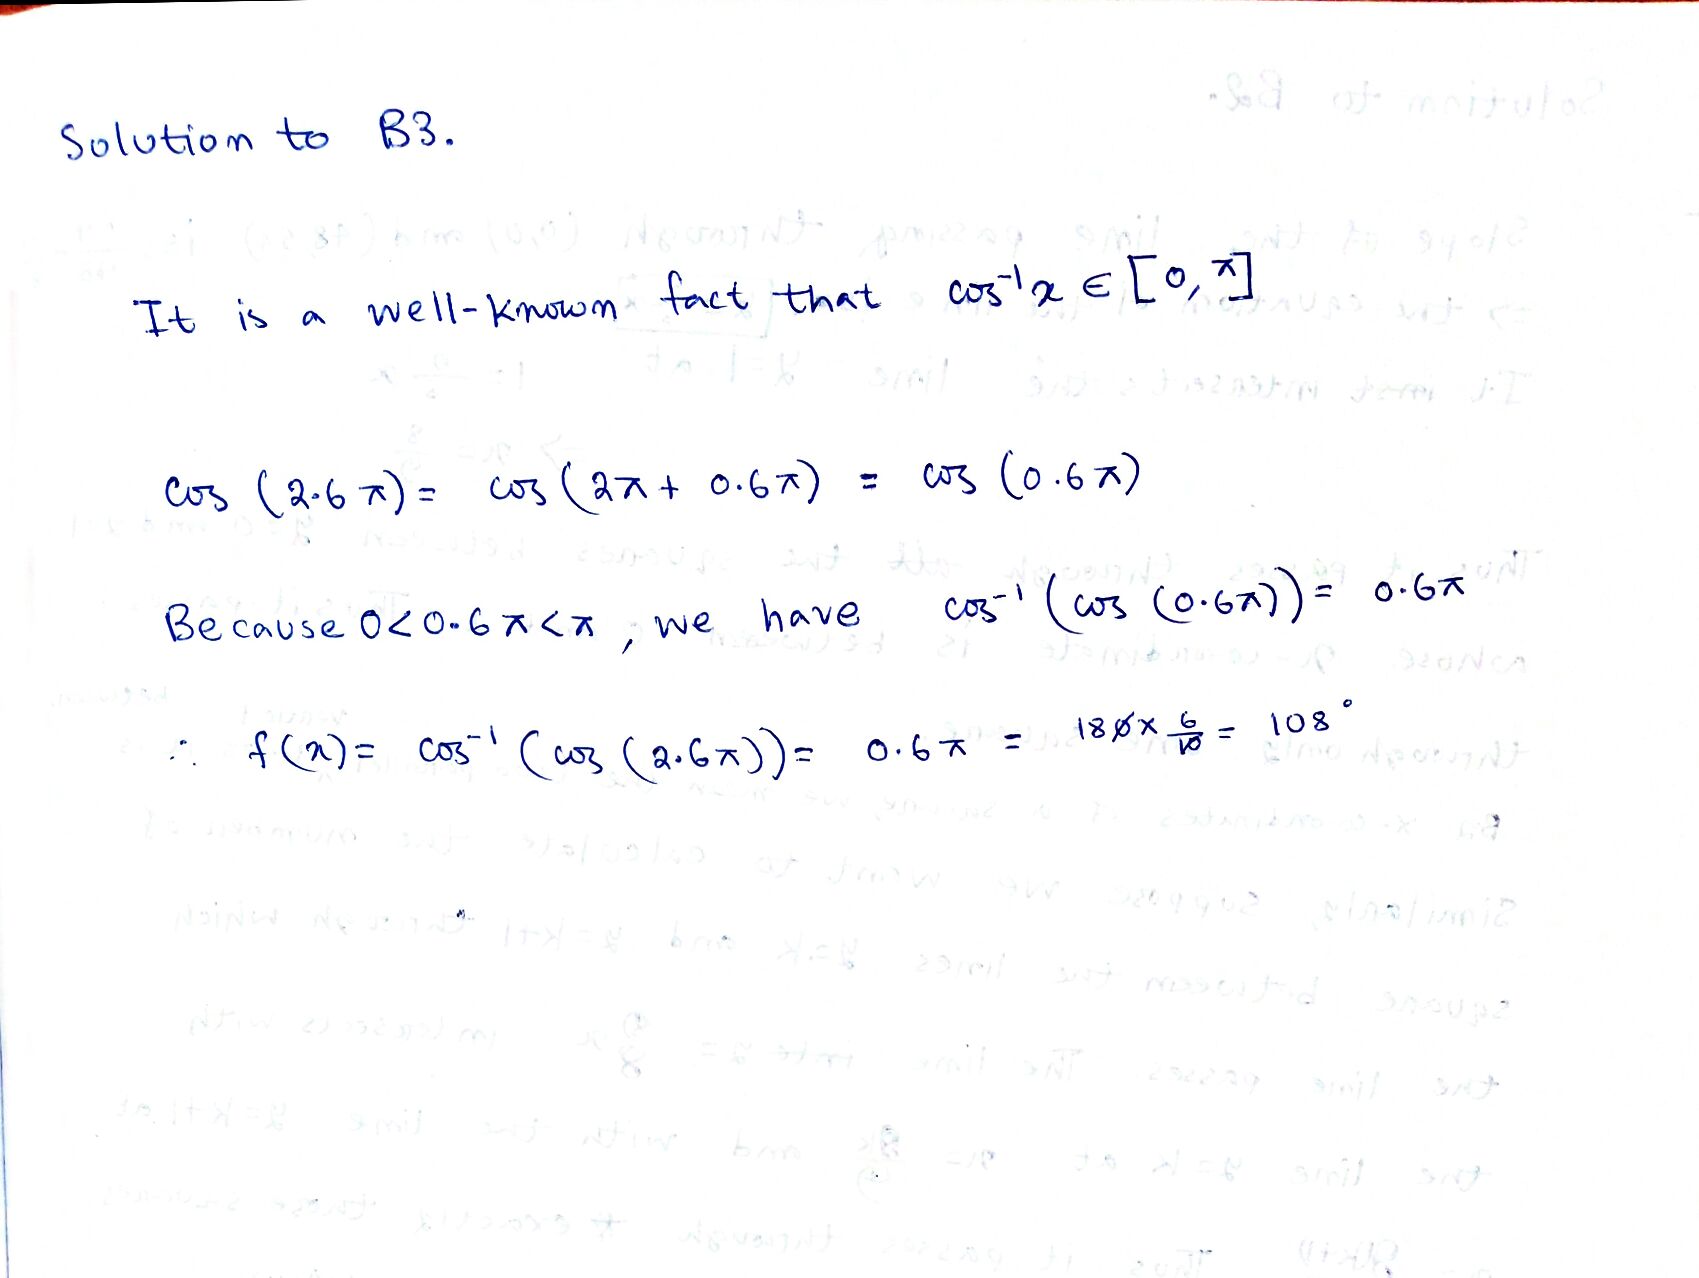 Solution to B3.
It is a well-known fact that cos⁻¹x ∈ [0, π]
cos (2.6 π) = cos (2π + 0.6π) = cos (0.6π)
Because 0<0.6π<π, we have cos⁻¹ (cos (0.6π)) = 0.6π
∴ f(x) = cos⁻¹ (cos (2.6π)) = 0.6π = 180 × 6/10 = 108°